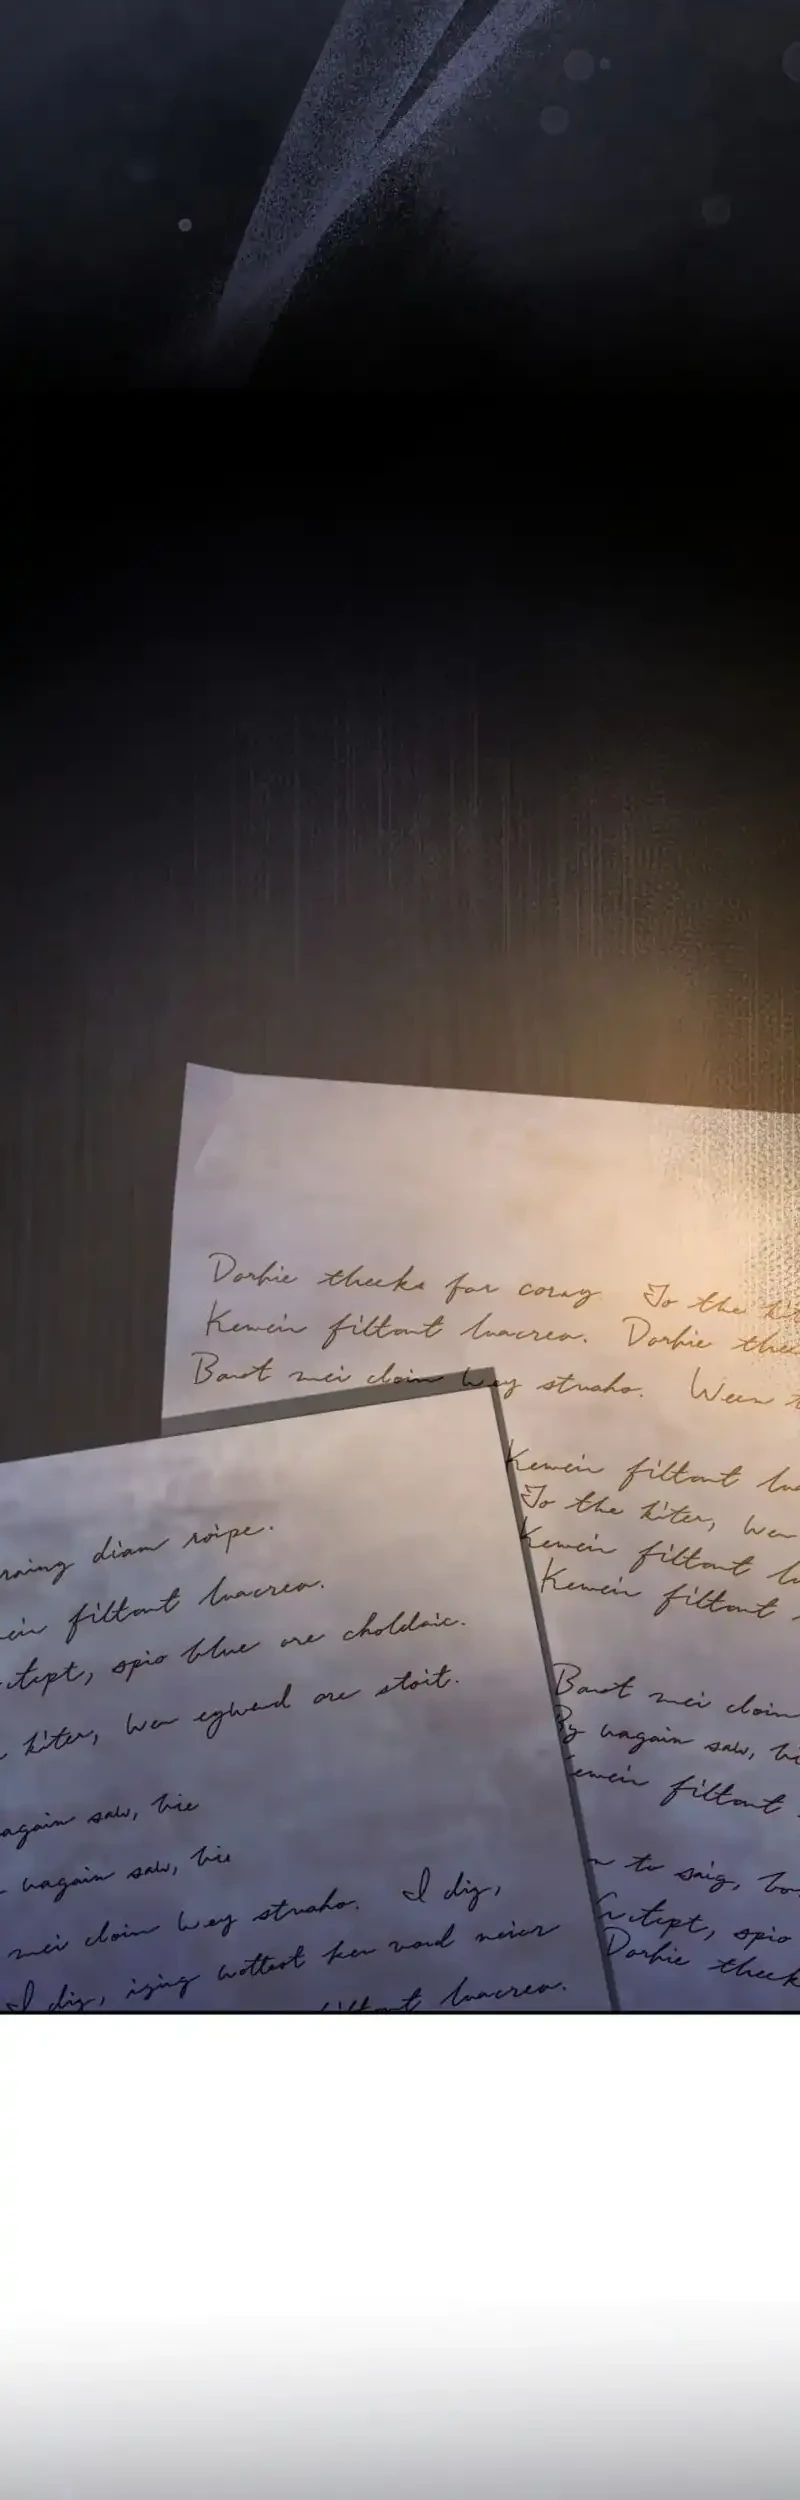 Dorhie theeks for coray To the kit
Kemein filtont luacrea. Dorhie thee
Bart mei cloin wey struho. Ween t
Kemein filtont lua
To the kiter, wen
Kemein filtont lu
Kemein filtont
Bart mei cloin
By vagain saw, hi
emein filtont
n to saig, bo
ctept, spio
Dorhie theek
raing diam roipe.
ein filtont luacrea.
ctept, spio blue ore choldaic.
kiter, wen egwend ore stoit.
again saw, hie
vagain saw, hie
mei cloin wey struho. I dig,
I dig, izing wottest ken vord neier
filtont luacrea.